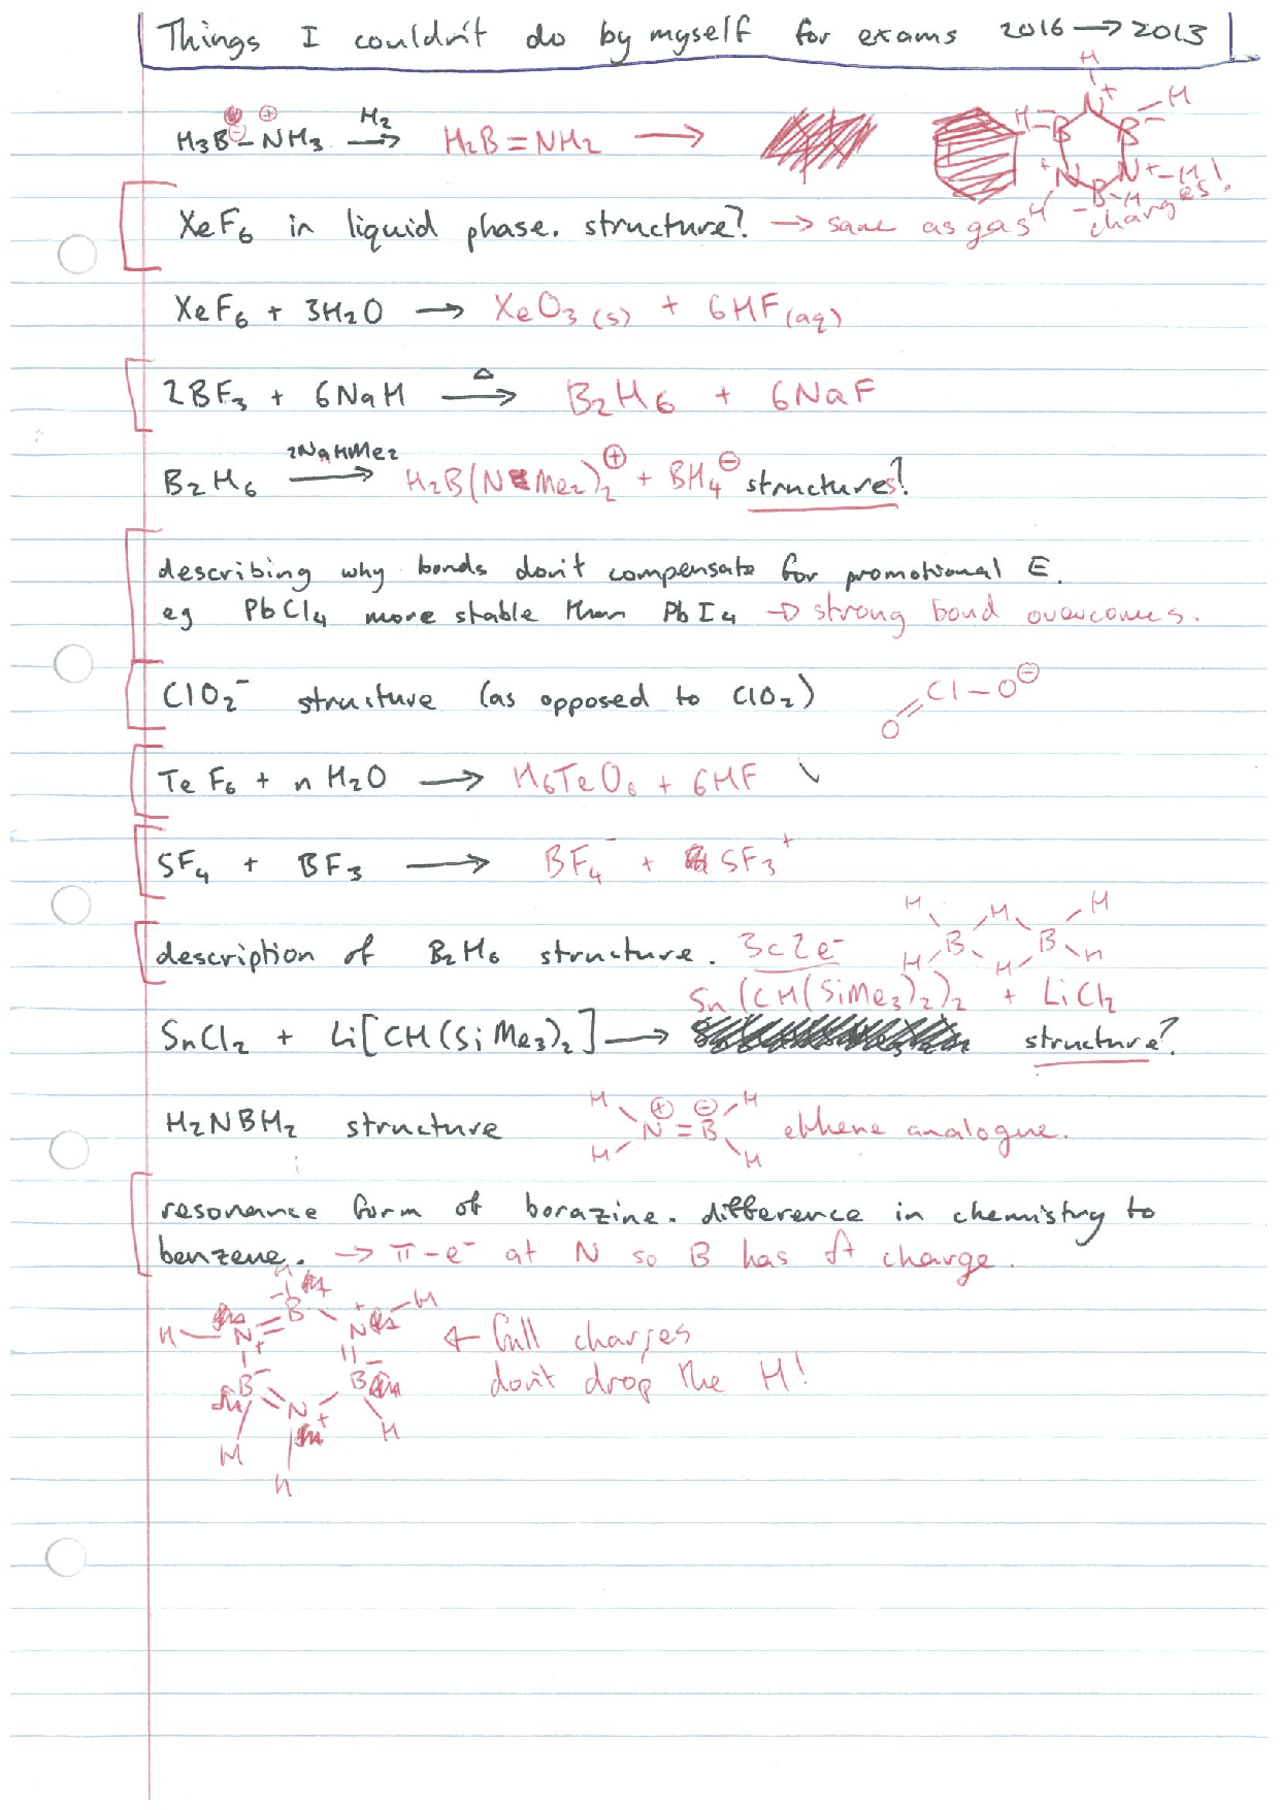 Things I couldn't do by myself for exams 2016 → 2013
H₃B⊖–⊕NH₃ →(H₂) H₂B=NH₂ →
H N⁺ H –B B– H ⁺N N⁺–H H –B H charges!
XeF₆ in liquid phase. structure? → same as gas
XeF₆ + 3H₂O → XeO₃(s) + 6HF(aq)
2BF₃ + 6NaH →(Δ) B₂H₆ + 6NaF
B₂H₆ →(2NaHMe₂) H₂B(NMe₂)₂⊕ + BH₄⊖ structures?
describing why bonds don't compensate for promotional E.
eg PbCl₄ more stable than PbI₄ → strong bond overcomes.
ClO₂⁻ structure (as opposed to ClO₂) O=Cl–O⊖
TeF₆ + nH₂O → H₆TeO₆ + 6HF
SF₄ + BF₃ → BF₄⁻ + SF₃⁺
H H H
description of B₂H₆ structure. 3c2e⁻ B B
H H H
Sn(CH(SiMe₃)₂)₂ + LiCl₂
SnCl₂ + Li[CH(SiMe₃)₂] → structure?
H H
H₂NBH₂ structure ⊕N=B⊖ ethene analogue.
H H
resonance form of borazine. difference in chemistry to
benzene. → π-e⁻ at N so B has δ+ charge.
H
–B
H–N⁺ N⁺–H ← full charges
B⁻ B⁻ don't drop the H!
N⁺ H
H
H